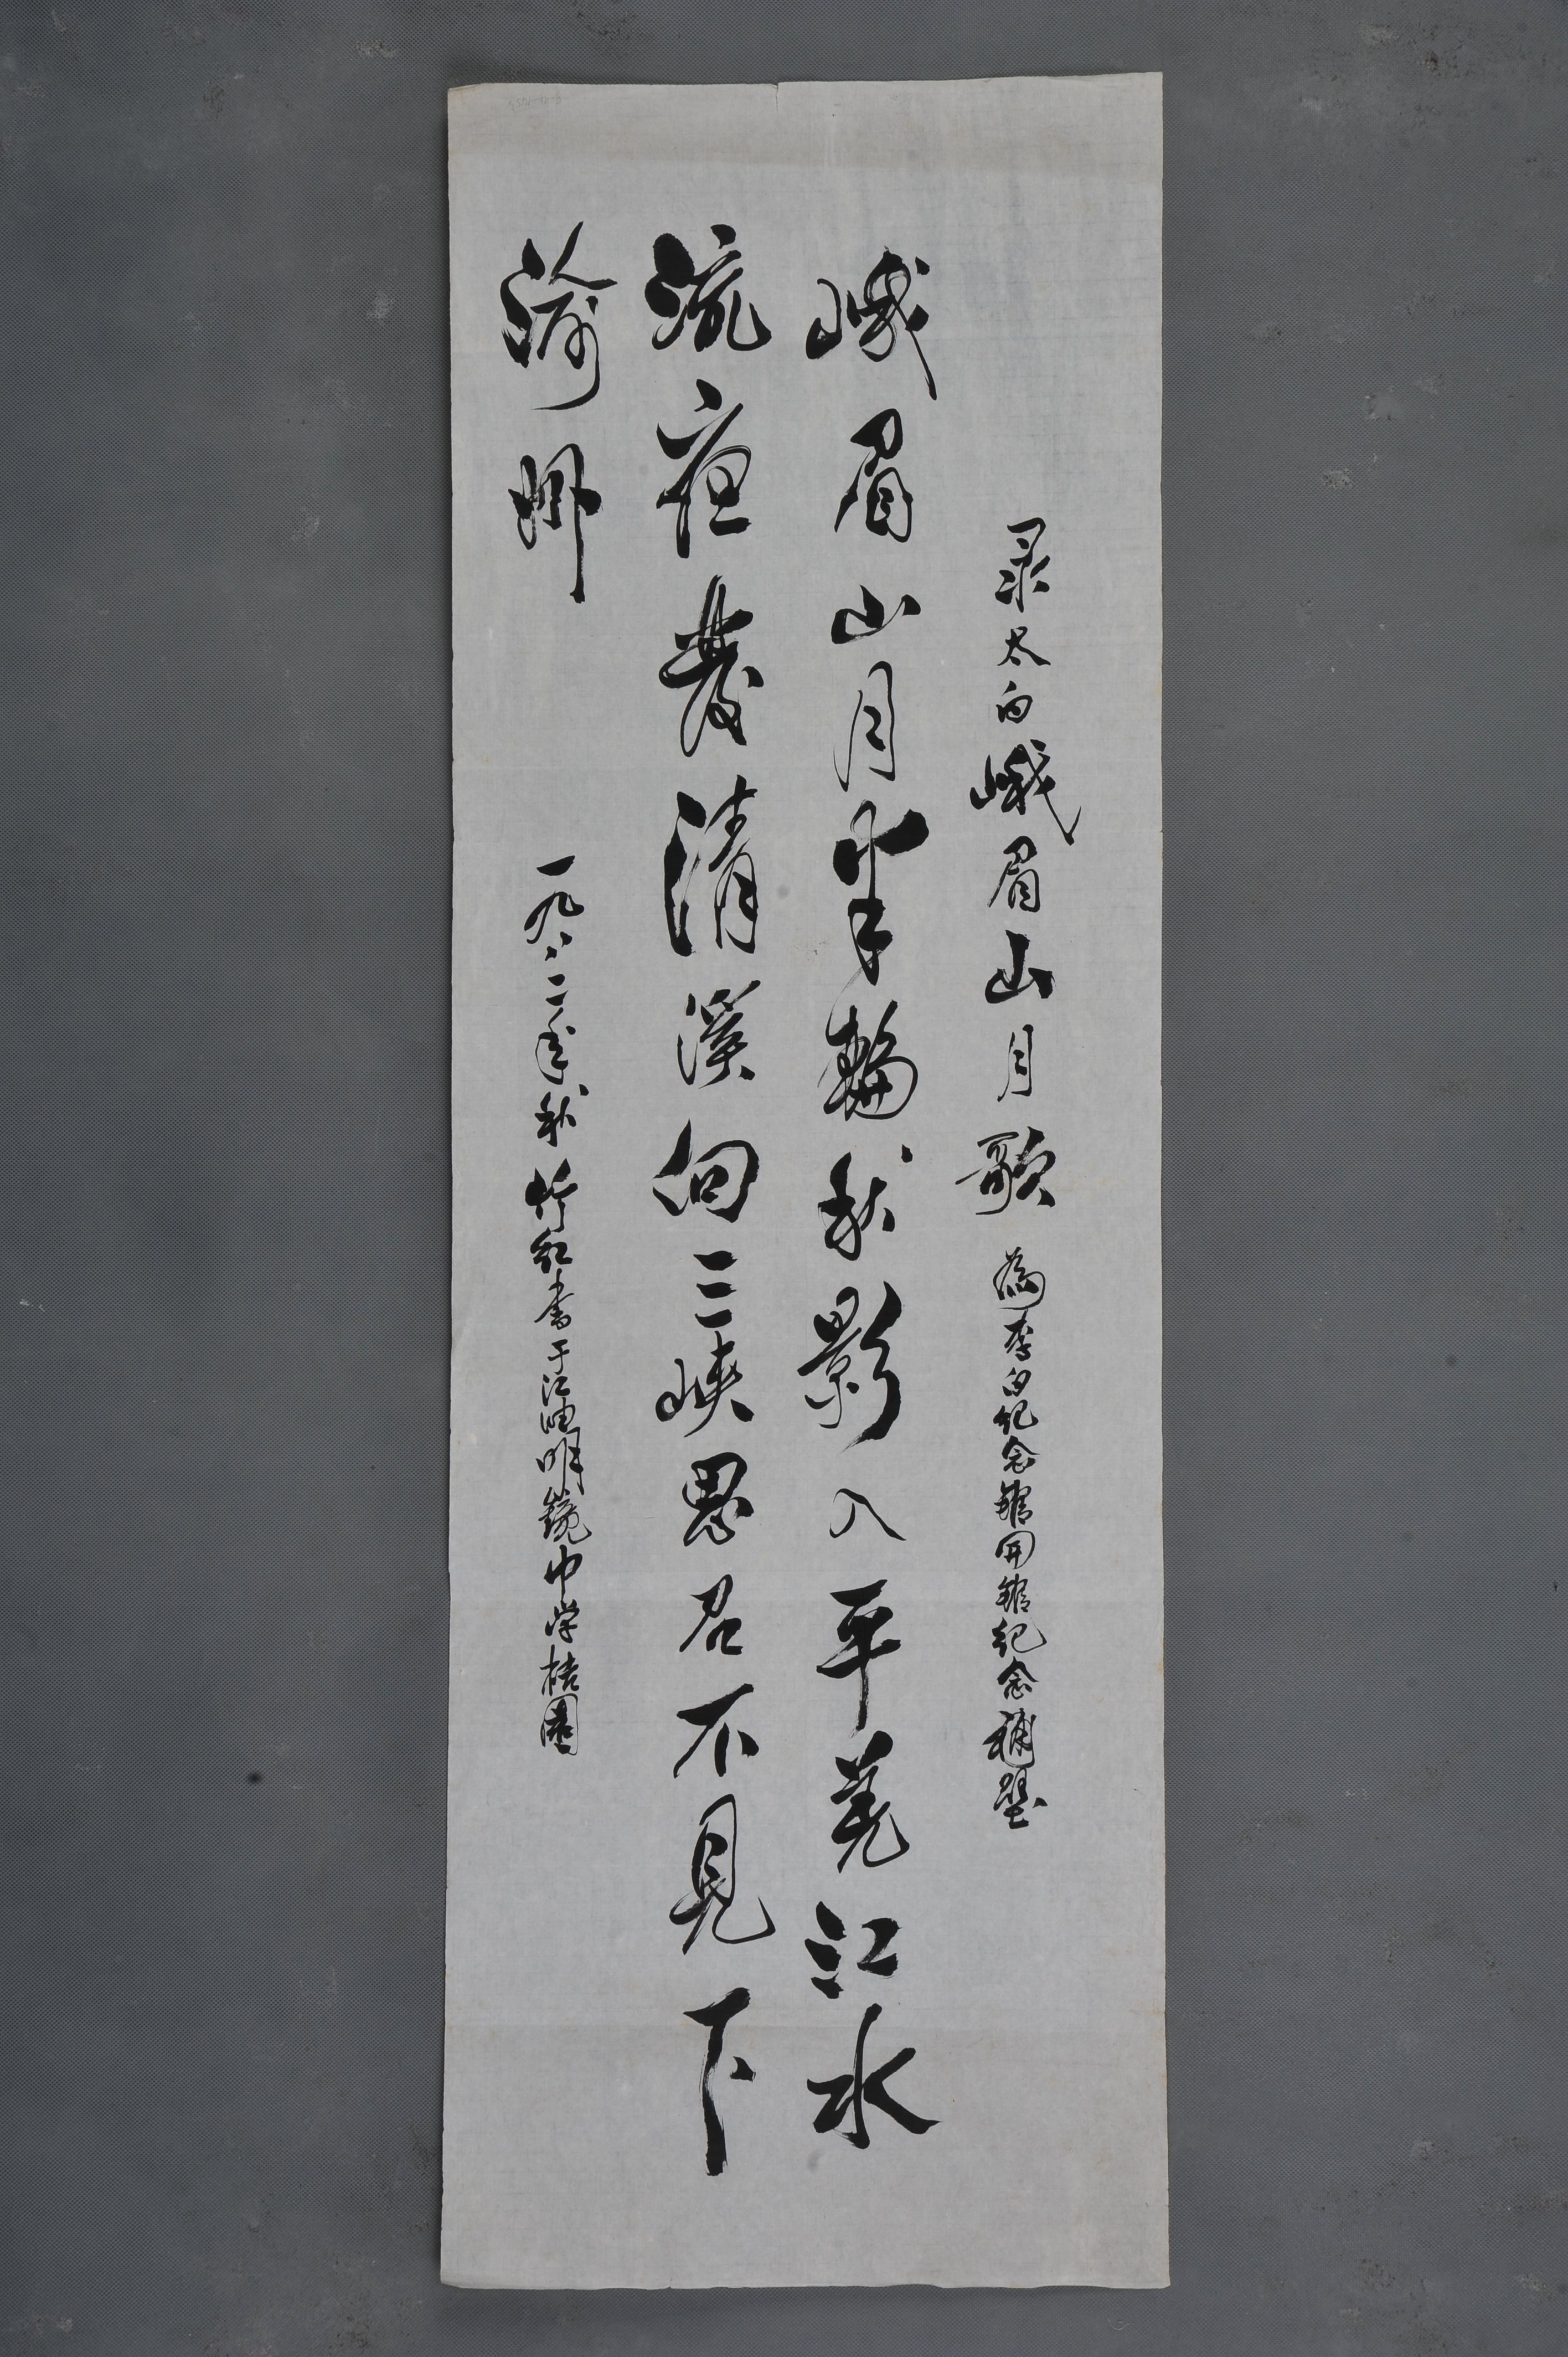 录太白峨眉山月歌 為李白纪念館開館纪念補壁
峨眉山月半輪秋影入平羌江水
流夜發清溪向三峡思君不見下
渝州
一九八二年秋竹紅書于江油明鏡中学桔園